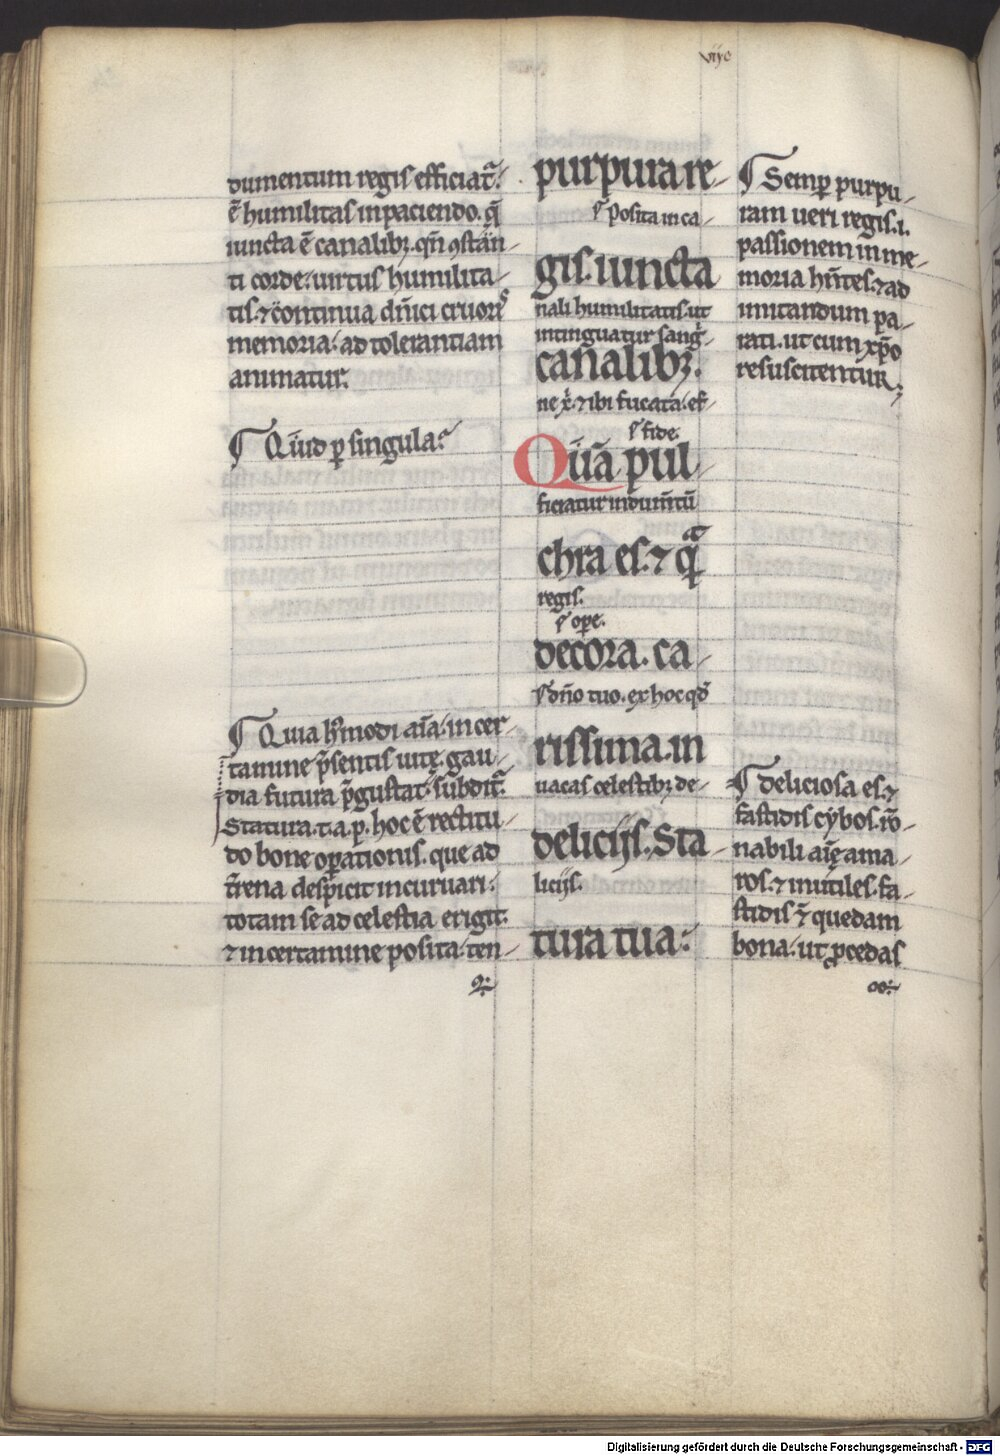 vijc
dumentum regis efficiat᷑.
ē humilitas in paciendo. q̄
iuncta ē canalibꝫ. qn̄ ꝯstan-
ti corde: uirtus humilita-
tis. ⁊ continua dn̄ici cruoris
memoria: ad tolerantiam
animatur.
¶ Quid ꝑ singula?
¶ Quia hꝰmodi aīa. in cer-
tamine p̄sentis uitę. gau-
dia futura p̄gustat. subdit᷑.
Statura. t. a. p. hoc ē rectitu-
do bone oꝑationis. que ad
t̄rena despicit incuruari:
totam se ad celestia erigit.
⁊ in certamine posita. ten-
purpura re-
posita in ca-
gis. iuncta
nali humilitatis. ut
intinguatur sang̃-
canalibꝫ.
ne xp̄i. ⁊ ibi fucata. ef-
fide.
Quā pul-
ficiatur indumētū
chra es. ⁊ qͣ
regis.
oꝑe.
decora. ca-
dn̄o tuo. ex hoc qd̄
rissima. in
uacas celestibꝫ de-
delicijs. Sta-
licijs.
tura tua:
¶ Semꝑ purpu-
ram ueri regis. i.
passionem in me-
moria hn̄tes. ⁊ ad
imitandum pa-
rati. ut cum xp̄o
resuscitentur.
¶ deliciosa es. ⁊
fastidis cybos. rō-
nabili aīę ama-
ros. ⁊ inutiles. fa-
stidis ⁊ quedam
bona. ut ꝓcedas